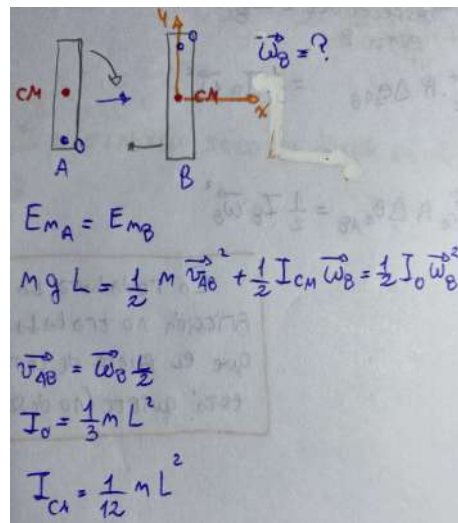 y
O
CM
CM
x
O
A
B
\vec{ω_B} = ?
E_{m_A} = E_{m_B}
m g L = \frac{1}{2} m \vec{v_{AB}}^2 + \frac{1}{2} I_{CM} \vec{ω_B} = \frac{1}{2} I_o \vec{ω_B}^2
\vec{v_{AB}} = \vec{ω_B} \frac{L}{2}
I_o = \frac{1}{3} m L^2
I_{CM} = \frac{1}{12} m L^2